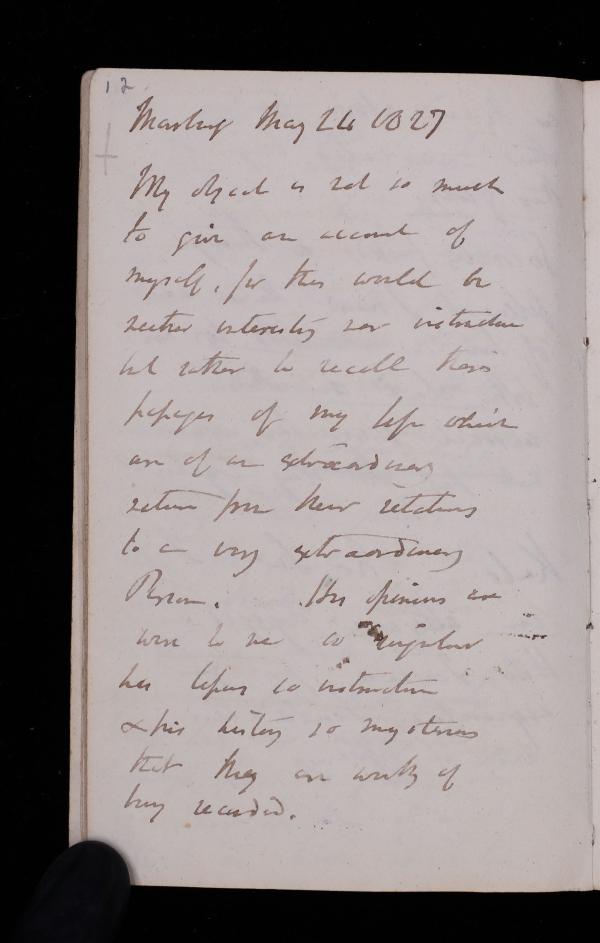 12
May 24 1827
My object is not so much
to give an account of
myself, for this would be
neither interesting nor instructive
but rather to recall those
passages of my life which
are of an extraordinary
nature from their relations
to a very extraordinary
Person. His opinions
were to me so singular
his so instructive
& his history so mysterious
that they are worthy of
being recorded.